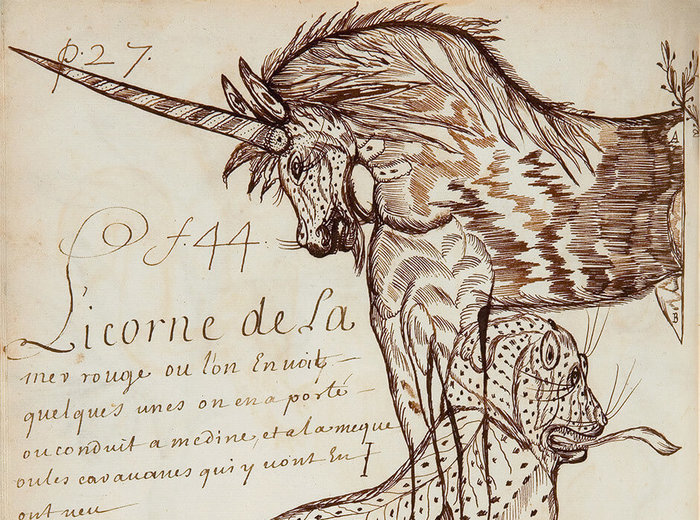 p. 27.
f. 44
Licorne de La
mer rouge ou l'on En voit
quelques unes on en a porté
ou conduit a medine, et a la meque
ou les caravanes qui y vont En
ont veu
A
B